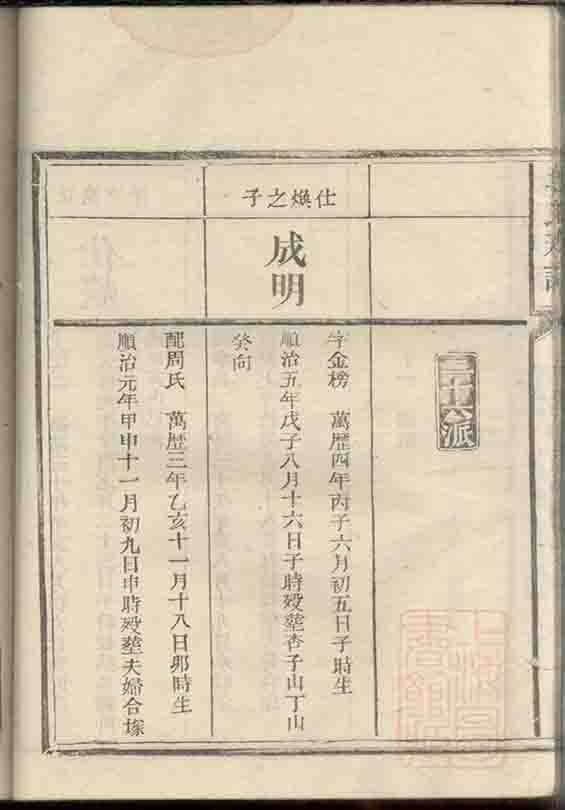 三十八派
仕煥之子
成明
字金榜　萬歷四年丙子六月初五日子時生
順治五年戊子八月十六日子時殁塟杏子山丁山
癸向
配周氏　萬歷三年乙亥十一月十八日卯時生
順治元年甲申十一月初九日申時殁塟夫婦合塚